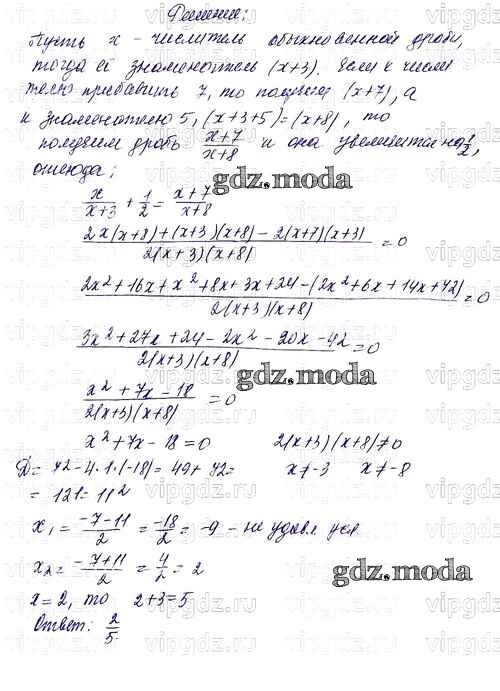 Решение:
Пусть x - числитель обыкновенной дроби,
тогда её знаменатель (x+3). Если к числи
телю прибавить 7, то получим (x+7), а
к знаменателю 5, (x+3+5)=(x+8), то
получим дробь x+7/x+8 и она увеличится на 1/2,
отсюда:
gdz.moda
x/x+3 + 1/2 = x+7/x+8
2x(x+8)+(x+3)(x+8)-2(x+7)(x+3)/2(x+3)(x+8) =0
2x²+16x+x²+8x+3x+24-(2x²+6x+14x+42)/2(x+3)(x+8) =0
3x²+27x+24-2x²-20x-42/2(x+3)(x+8) =0
gdz.moda
x²+7x-18/2(x+3)(x+8) =0
x²+7x-18=0 2(x+3)(x+8)≠0
D=7²-4·1·(-18)=49+72= x≠-3 x≠-8
=121=11²
x₁=-7-11/2=-18/2=-9 - не удовл усл
x₂=-7+11/2=4/2=2
gdz.moda
x=2, то 2+3=5
Ответ: 2/5
vipgdz.ru